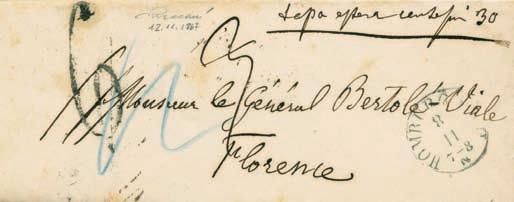 12.11.1867
tassa estera centesimi 30
6
3
Monsieur le Général Bertolé-Viale
Florence
HOMBURG
8
11
7-8
N